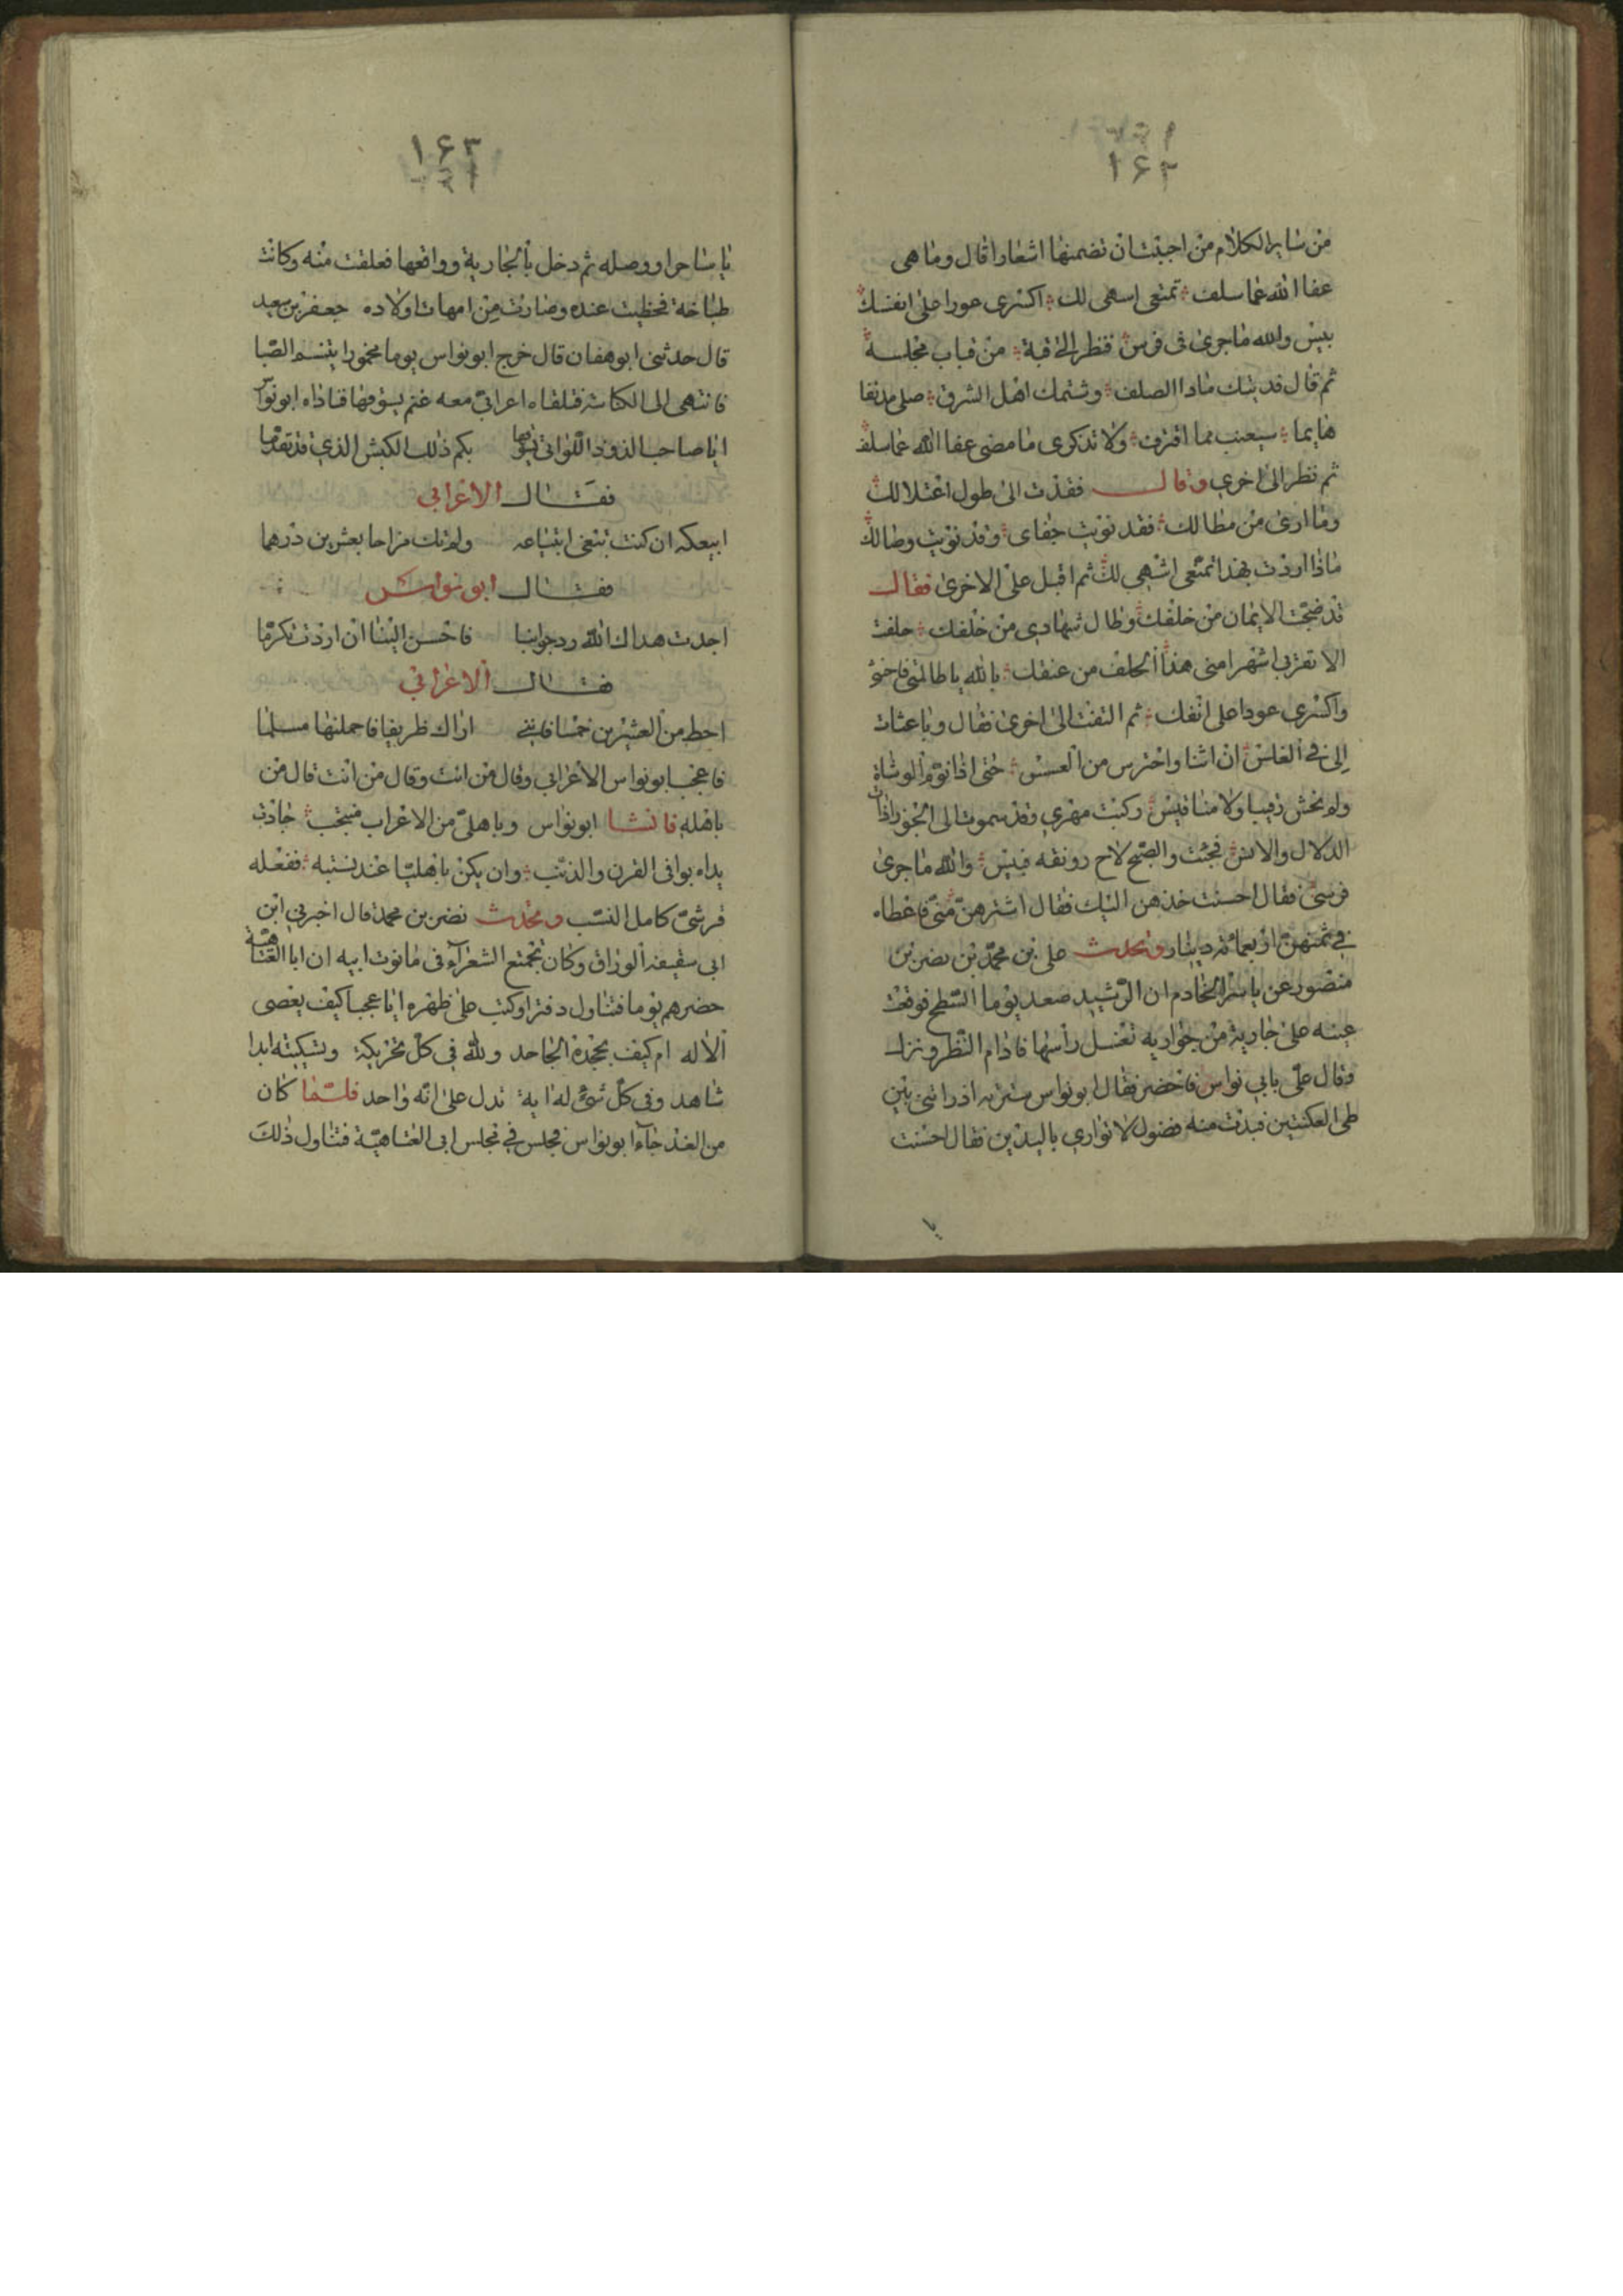 ١٦٢
من ساير الكلام من اجبت ان تضمنها اشعارا قال وما هى
عفا الله عما سلف تمنعى اسهى لك اكسرى عودا على انفك
بيس والله ما جرى فى فرس فنظر الى قبة من قباب مجلسه
ثم قال فديتك ماذا الصلف وشتمك اهل الشرف صلى مدنفا
هايما سيعتب مما اقترف ولا تذكرى ما مضى عفا الله عما سلف
ثم نظر الى اخرى وقال فقذت الى طول اعتلالك
وما ارى من مطالك فقد نويت جفاى وقد نويت وصالك
ماذا اردت بهذا تمنعى اشهى لك ثم اقبل على الاخرى فقال
قد ضجت الايمان من خلفك وطال تهادى من خلفك حلفت
الا تقربى اشهرا منى هذا الحلف من عنقك بالله يا ظالمتى
واكسرى عودا على انفك ثم التفت الى اخرى فقال وباعثات
الى فى الغلس ان اتنا واحترس من العسس حتى اذا نوم الوشاة
ولم نخش رقيبا ولا منا قبس ركبت مهرى وقد سموت الى
الدلال والانس فجئت والصبح لاح رونقه فبيس والله ما جرى
فرسى فقال احسنت خذهن اليك فقال اشترهن منى فاعطاه
فى ثمنهن اربعمائة دينار وتحدث على بن محمد بن نصر بن
منصور عن ياسر الخادم ان الرشيد صعد يوما السطح فوقعت
عينه على جارية من جواريه تغسل رأسها فادام النظر ونزل
وقال على بابى نواس فاحضر فقال ابو نواس
طى العكنتين فبدت منه فضول لا توارى باليدين فقال احسنت
يا
١٦٣
يا ساحر ووصله ثم دخل بالجارية وواقعها فعلقت منه وكانت
طباخة فحظيت عنده وصارت من امهات اولاده جعفر بن سعيد
قال حدثنى ابو هفان قال خرج ابو نواس يوما مخمورا يتنسم الصبا
فانتهى الى الكناسة فتلقاه اعرابى معه غنم يسوقها فناداه ابو نواس
ايا صاحب الذود اللواتى يسوقها بكم ذلك الكبش الذى قد تقدما
فقال الاعرابى
ابيعكه ان كنت تبتغى ابتياعه ولم تك مزاحا بعشرين درهما
فقال ابو نواس
اجدت هداك الله رد جوابنا فاحسن الينا ان اردت تكرما
فقال الاعرابى
احط من العشرين خمسا فاننى اراك ظريفا فاحملنها مسلما
فاعجب ابو نواس الاعرابى وقال من انت وقال من انت قال من
باهله فانشا ابو نواس وباهلى من الاعراب منتجب جادت
يداه بوافى القرن والذنب وان يكن باهليا عند نسبته ففعله
قرشى كامل النسب وتحدث نصر بن محمد قال اخبرنى ابن
ابى سقيفه الوراق وكان تجتمع الشعراء فى حانوت ابيه ان ابا العتاهية
حضرهم يوما فتناول دفترا وكتب على ظهره ايا عجبا كيف يعصى
الاله ام كيف يجحده الجاحد ولله فى كل تحريكة وتسكينة ابدا
شاهد وفى كل شئ له اية تدل على انه واحد فلما كان
من الغد جاء ابو نواس فجلس فى مجلس ابى العتاهية فتناول ذلك